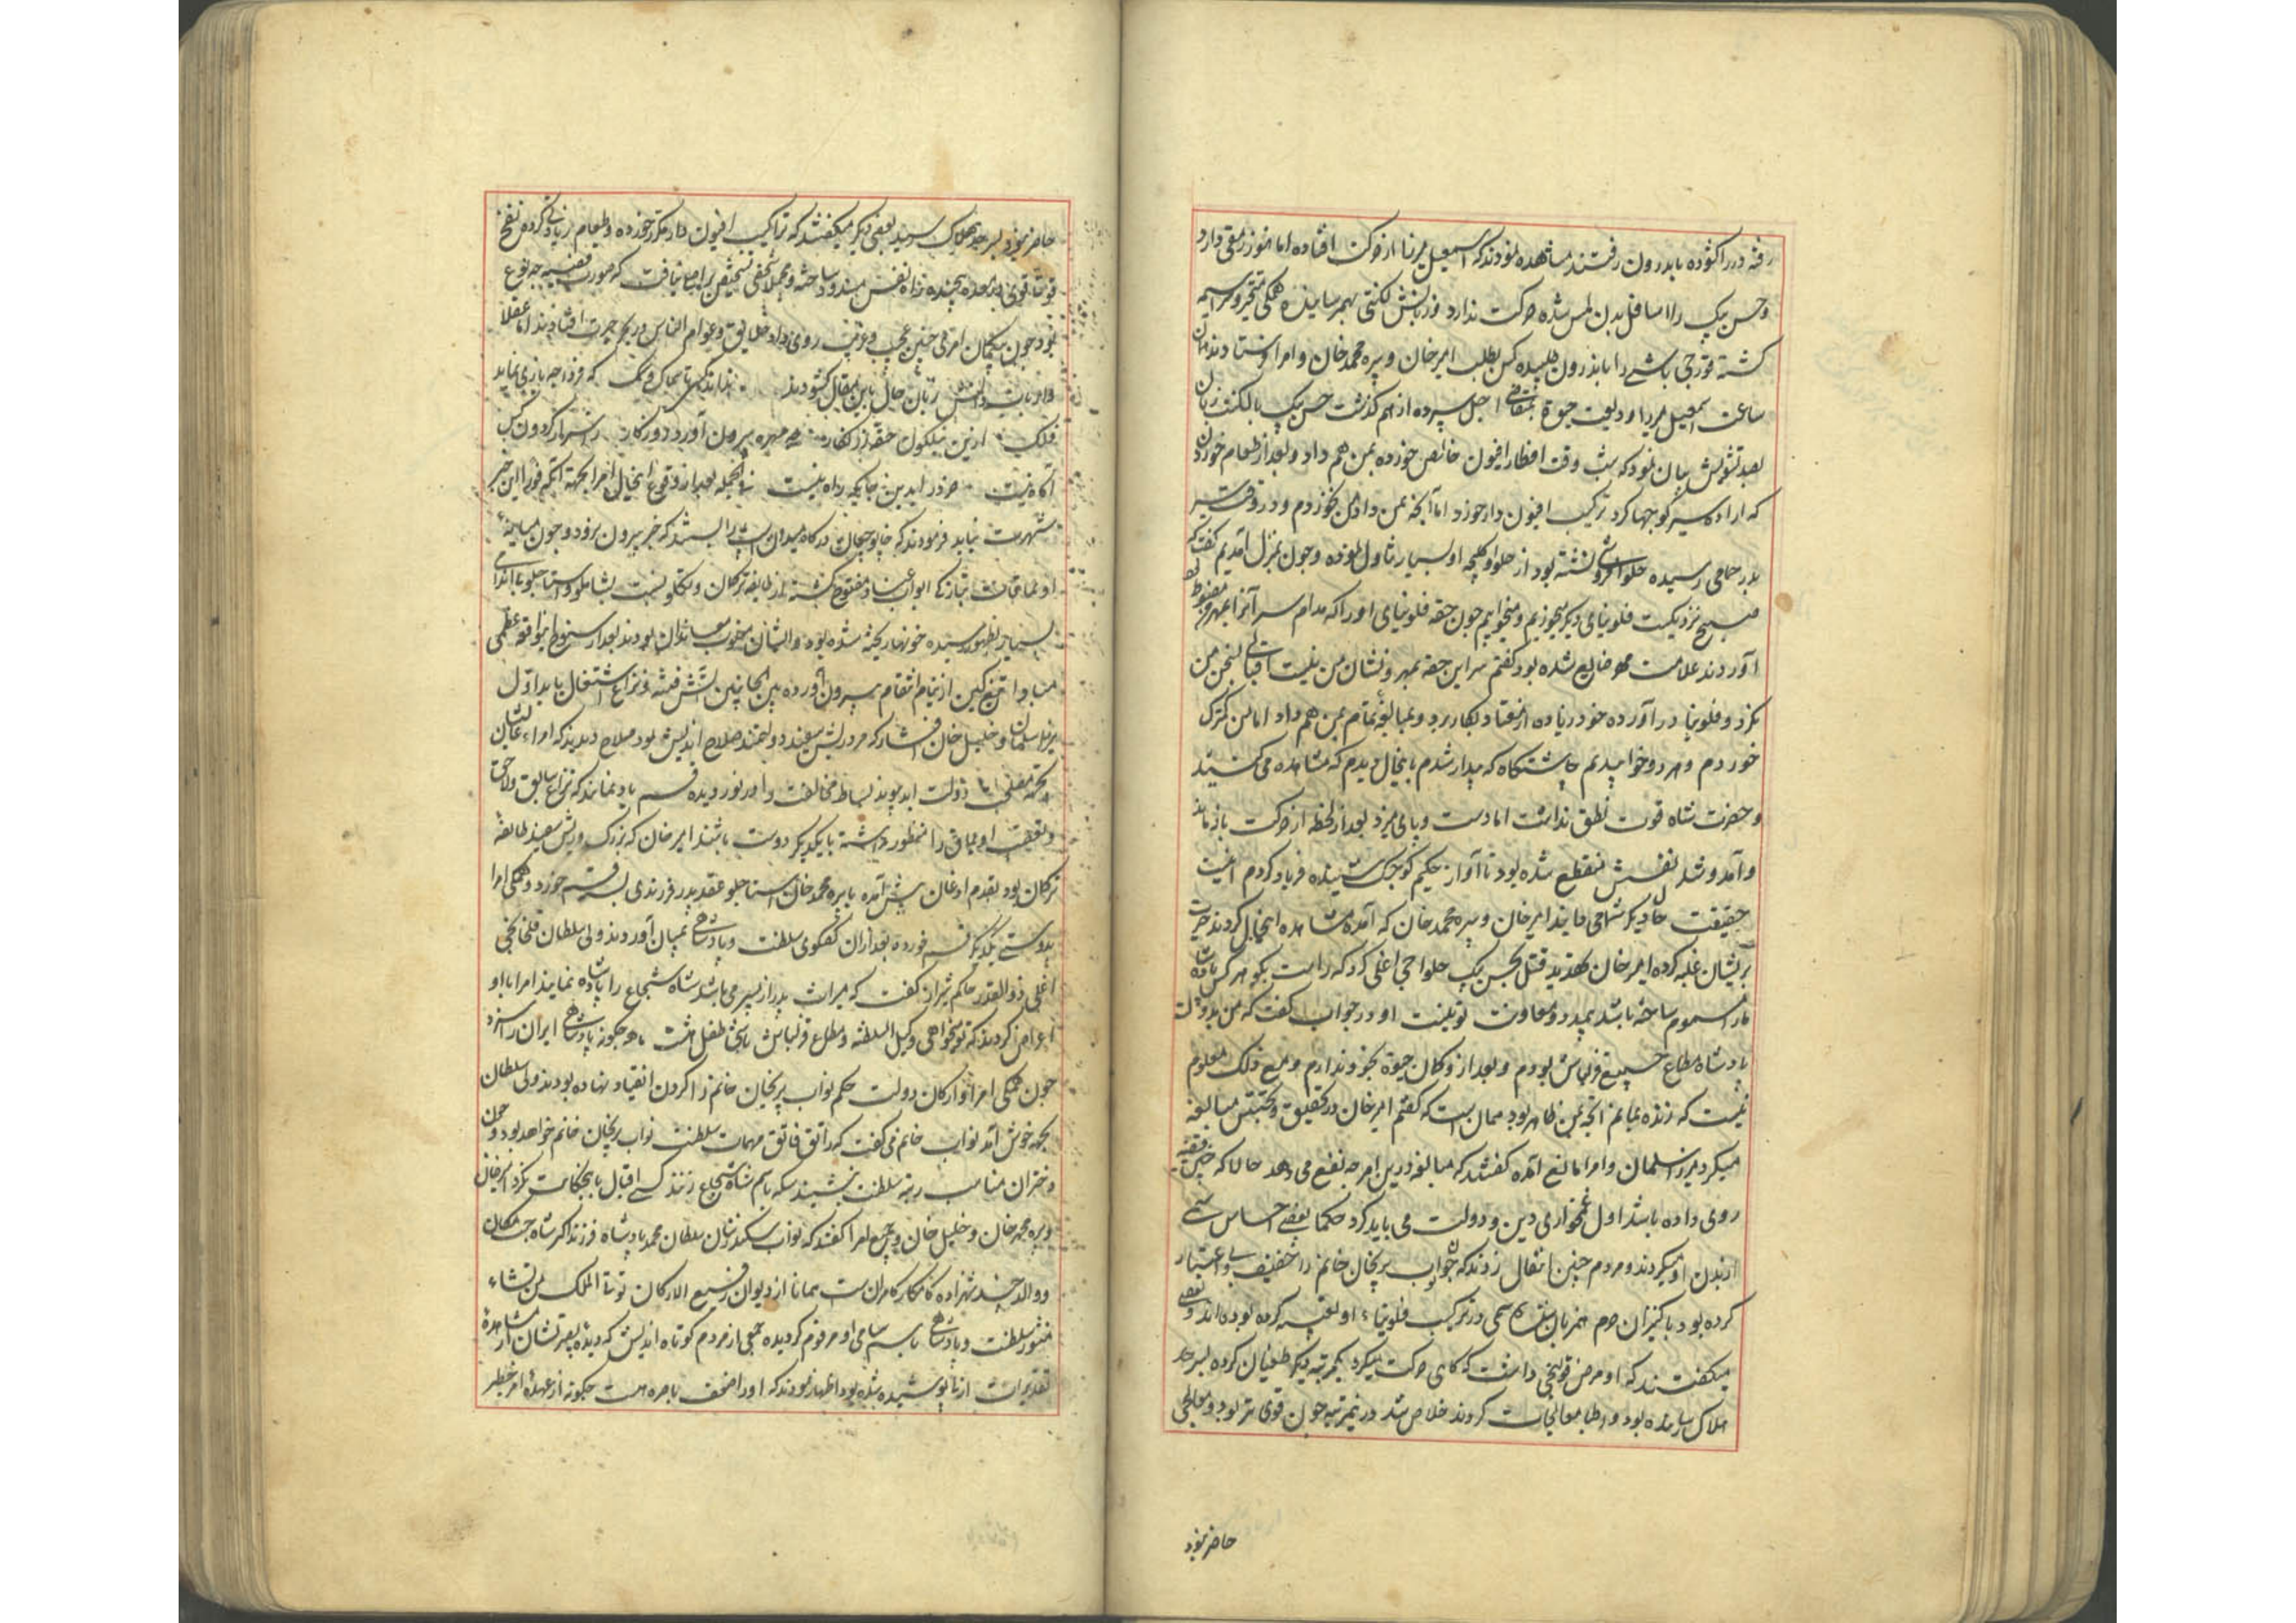 رفته در را کشوده باندرون رفتند مشاهده نمودند که اسمعیل میرزا از حرکت افتاده اما هنوز رمقی دارد
و حسن بیک را اسافل بدن لمس شده حرکت ندارد و زبانش لکنتی بهم رسانیده همکی متحیر و سراسیمه
کشته قورچی باشی را باندرون طلبیده کس بطلب امیر خان و پیره محمد خان و امرا فرستادند همان
ساعت اسمعیل میرزا ودیعت حیوة بمتقاضی اجل سپرده از هم کذشت حسن بیک با لکنت زبان
بصد تشویش بیان نمود که شب وقت افطار افیون خالص خورده بمن هم داد و بعد از طعام خوردن
که اراده سیر کوچها کرد ترکیب افیون دار خورد اما آنچه بمن داد من نخوردم و در وقت سیر
بدر حمامی رسیده حلوا فروشی نشسته بود از حلوا و کلیچه او بسیار تناول نموده و چون بمنزل آمدیم گفت که
صبح نزدیکست فلونیای دیکر میخوریم و میخوابیم چون حقه فلونیای او را که مدام سر آنرا بمهر مضبوط
آوردند علامت مهر ضایع شده بود کفتم سر این حقه بمهر و نشان من نیست التفاتی بسخن من
نکرد و فلونیا در آورده خود زیاده از معتاد بکار برد و بمبالغه تمام بمن هم داد اما من کمترک
خوردم و هر دو خوابیدیم چاشتکاه که بیدار شدم باینحال دیدم که مشاهده می کنید
و حضرت شاه قوت نطق نداشت اما دست و پائی میزد بعد از لحظه از حرکت باز ماند
و آمد و شد نفسش منقطع شده بود تا آواز حکیم کوچک شنیده فریاد کردم اینست
حقیقت حال دیکر شما می دانید امیر خان و پیره محمد خان که آمده مشاهده اینحال کردند حیرت
بریشان غلبه کرده امیر خان تهدید قتل بحسن بیک حلواچی اغلی کرد که راست بکو هر کس پادشاه
ما را مسموم ساخته باشد بیمدد و معاونت تو نیست او در جواب گفت که من بدولت
پادشاه مطاع جمیع قزلباش بودم و بعد ازو کمان حیوة بخود ندارم و مع ذلک معلوم
نیست که زنده بمانم آنچه بمن ظاهر بود همان است که گفتم امیر خان در تحقیق و تجسس مبالغه
میکرد میرزا سلمان و امرا مانع آمده گفتند که مبالغه درین امر چه نفع می دهد حالا که چنین قضیه
روی داده باشد اول غمخواری دین و دولت می باید کرد حکما بعضی احساس سمی
از بدن او میکردند و مردم چنین انتقال زدند که چون نواب پریخان خانم را خفیف و بی اعتبار
کرده بود با کنیزان حرم همزبان شده سمی در ترکیب فلونیاء او تعبیه کرده بوده اند و بعضی
میکفتند که او مرض قولنجی داشت که کاهی حرکت میکرد یکمرتبه دیکر طغیان کرده بسرحد
هلاک رسانیده بود و اطبا معالجات کردند خلاص شد درینمرتبه چون قوی تر بود و معالجی
حاضر نبود
حاضر نبود بسرحد هلاک رسید بعضی دیکر میکفتند که تراکیب افیون دار مکرر خورده و طعام زیادتی کرده نفخ
قوتی قوی در معده پیچیده راه نفس مسدود ساخته و مجملا شخصی تشخیص برابها نیافت که صورت قضیه چه نوع
بود چون بیکمان امری چنین عجیب و غریب روی داد خلایق و عوام الناس در بحر حیرت افتادند اما عقلا
و ارباب دانش زبان حال باین مقال کشودند نداند کسی تا سماک و سمک که فردا چه بازی نماید
فلک ازین نیلکون حقه زرنکار چه مهره برون آورد روزکار ز اسرار کردون کس
آکاه نیست خرد را بدین جایکه راه نیست فی الجمله بعد از وقوع اینحال امرا بجهة آنکه فورا این خبر
شهرت نیابد فرمودند که قاپوچیان در کاه میدان اسب را بستند که خبر بیرون نرود و چون میانه
اویماقات بتازکی ابواب عناد مفتوح کشته از طایفه ترکمان و تکلو نسبت بشاملو و استاجلو بی اندامی
بسیار بظهور رسیده خونها ریخته شده بود و ایشان مغلوب معاندان بودند بعد از سنوح این واقعه عظمی
مبادا تیغ کین از نیام انتقام بیرون آورده بین الجانبین آتش فتنه و نزاع اشتعال یابد اول
میرزا سلمان و خلیل خان افشار که مرد ریش سفید دولتمند صلاح اندیش بود صلاح دیدند که امراء عالیشان
بجهة مصلحت دولت ابد پیوند بساط مخالفت را در نوردیده قسم یاد نمایند که نزاع سابق و لاحق
و تعصب اویماق را منظور نداشته با یکدیکر دوست باشند امیر خان که بزرک و ریش سفید طایفه
ترکمان بود بقدم اذعان پیش آمده با پیره محمد خان استاجلو عقد پدر فرزندی بسته قسم خورد و همکی امرا
بدوستی یکدیکر قسم خورده بعد از آن کفتکوی سلطنت و پادشاهی بمیان آوردند ولی سلطان قلخانچی
اغلی ذوالقدر حاکم شیراز گفت که میراث پدر از پسر می باشد شاه شجاع را پادشاه نمایند امرا با او
اعراض کردند که تو میخواهی وکیل السلطنه و مطاع قزلباش باشی طفل هشت ماهه چکونه پادشاهی ایران را سزد
چون همکی امرا و ارکان دولت حکم نواب پریخان خانم را کردن انقیاد نهاده بودند ولی سلطان
بجهة خوش آمد نواب خانم می گفت که راتق و فاتق مهمات سلطنت نواب پریخان خانم خواهد بود و چون
دختران مناسب رتبه سلطنت نیستند سکه باسم شاه شجاع زنند کسی اقبال باینحکایت نکرد امیر خان
و پیره محمد خان و خلیل خان و جمیع امرا کفتند که نواب سکندر شان سلطان محمد پادشاه فرزند اکبر شاه جنت مکان
و والد چند شهزاده کامکار کامران است همانا از دیوان رفیع الارکان توتی الملک من تشاء
منشور سلطنت و پادشاهی باسم سامی او مرقوم کردیده جمعی از مردم کوتاه اندیش که دیده بصیرتشان از مشاهده
تقدیرات ازلی پوشیده شده بود اظهار نمودند که او را ضعف باصره هست چکونه از عهده امر خطیر